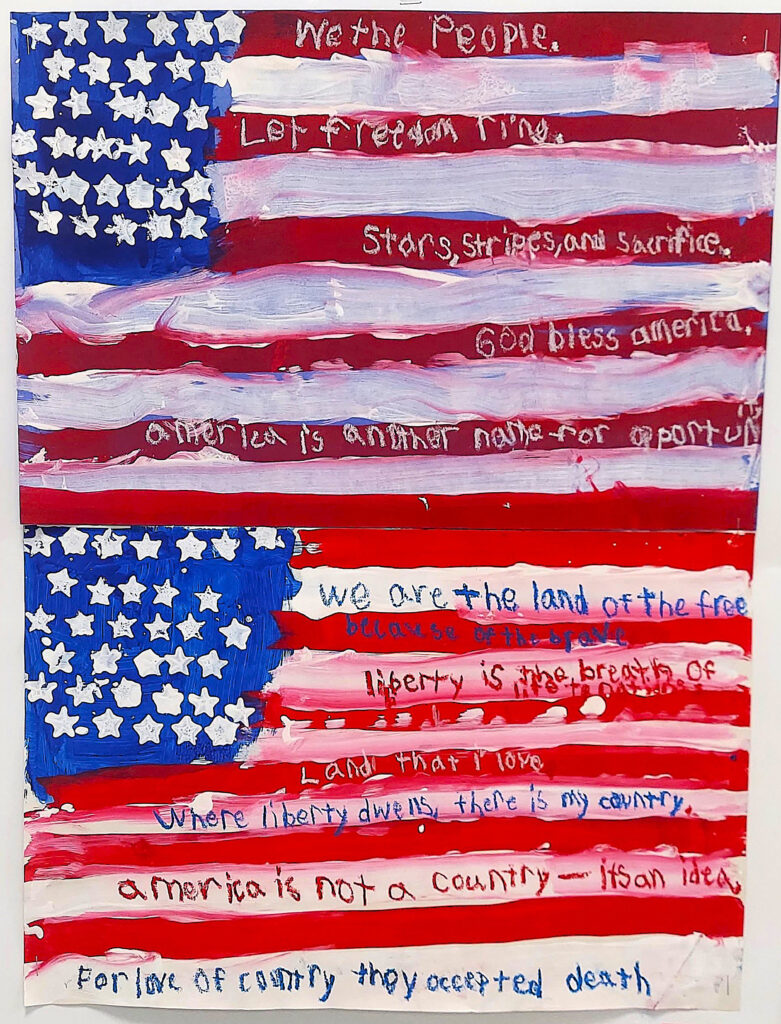 We the People.
Let freedom ring.
Stars, stripes, and sacrifice.
God bless america.
america is another name for opportunity
we are the land of the free
because of the brave
liberty is the breath of
life to
Land that I love
Where liberty dwells, there is my country.
america is not a country — its an idea.
For love of country they accepted death